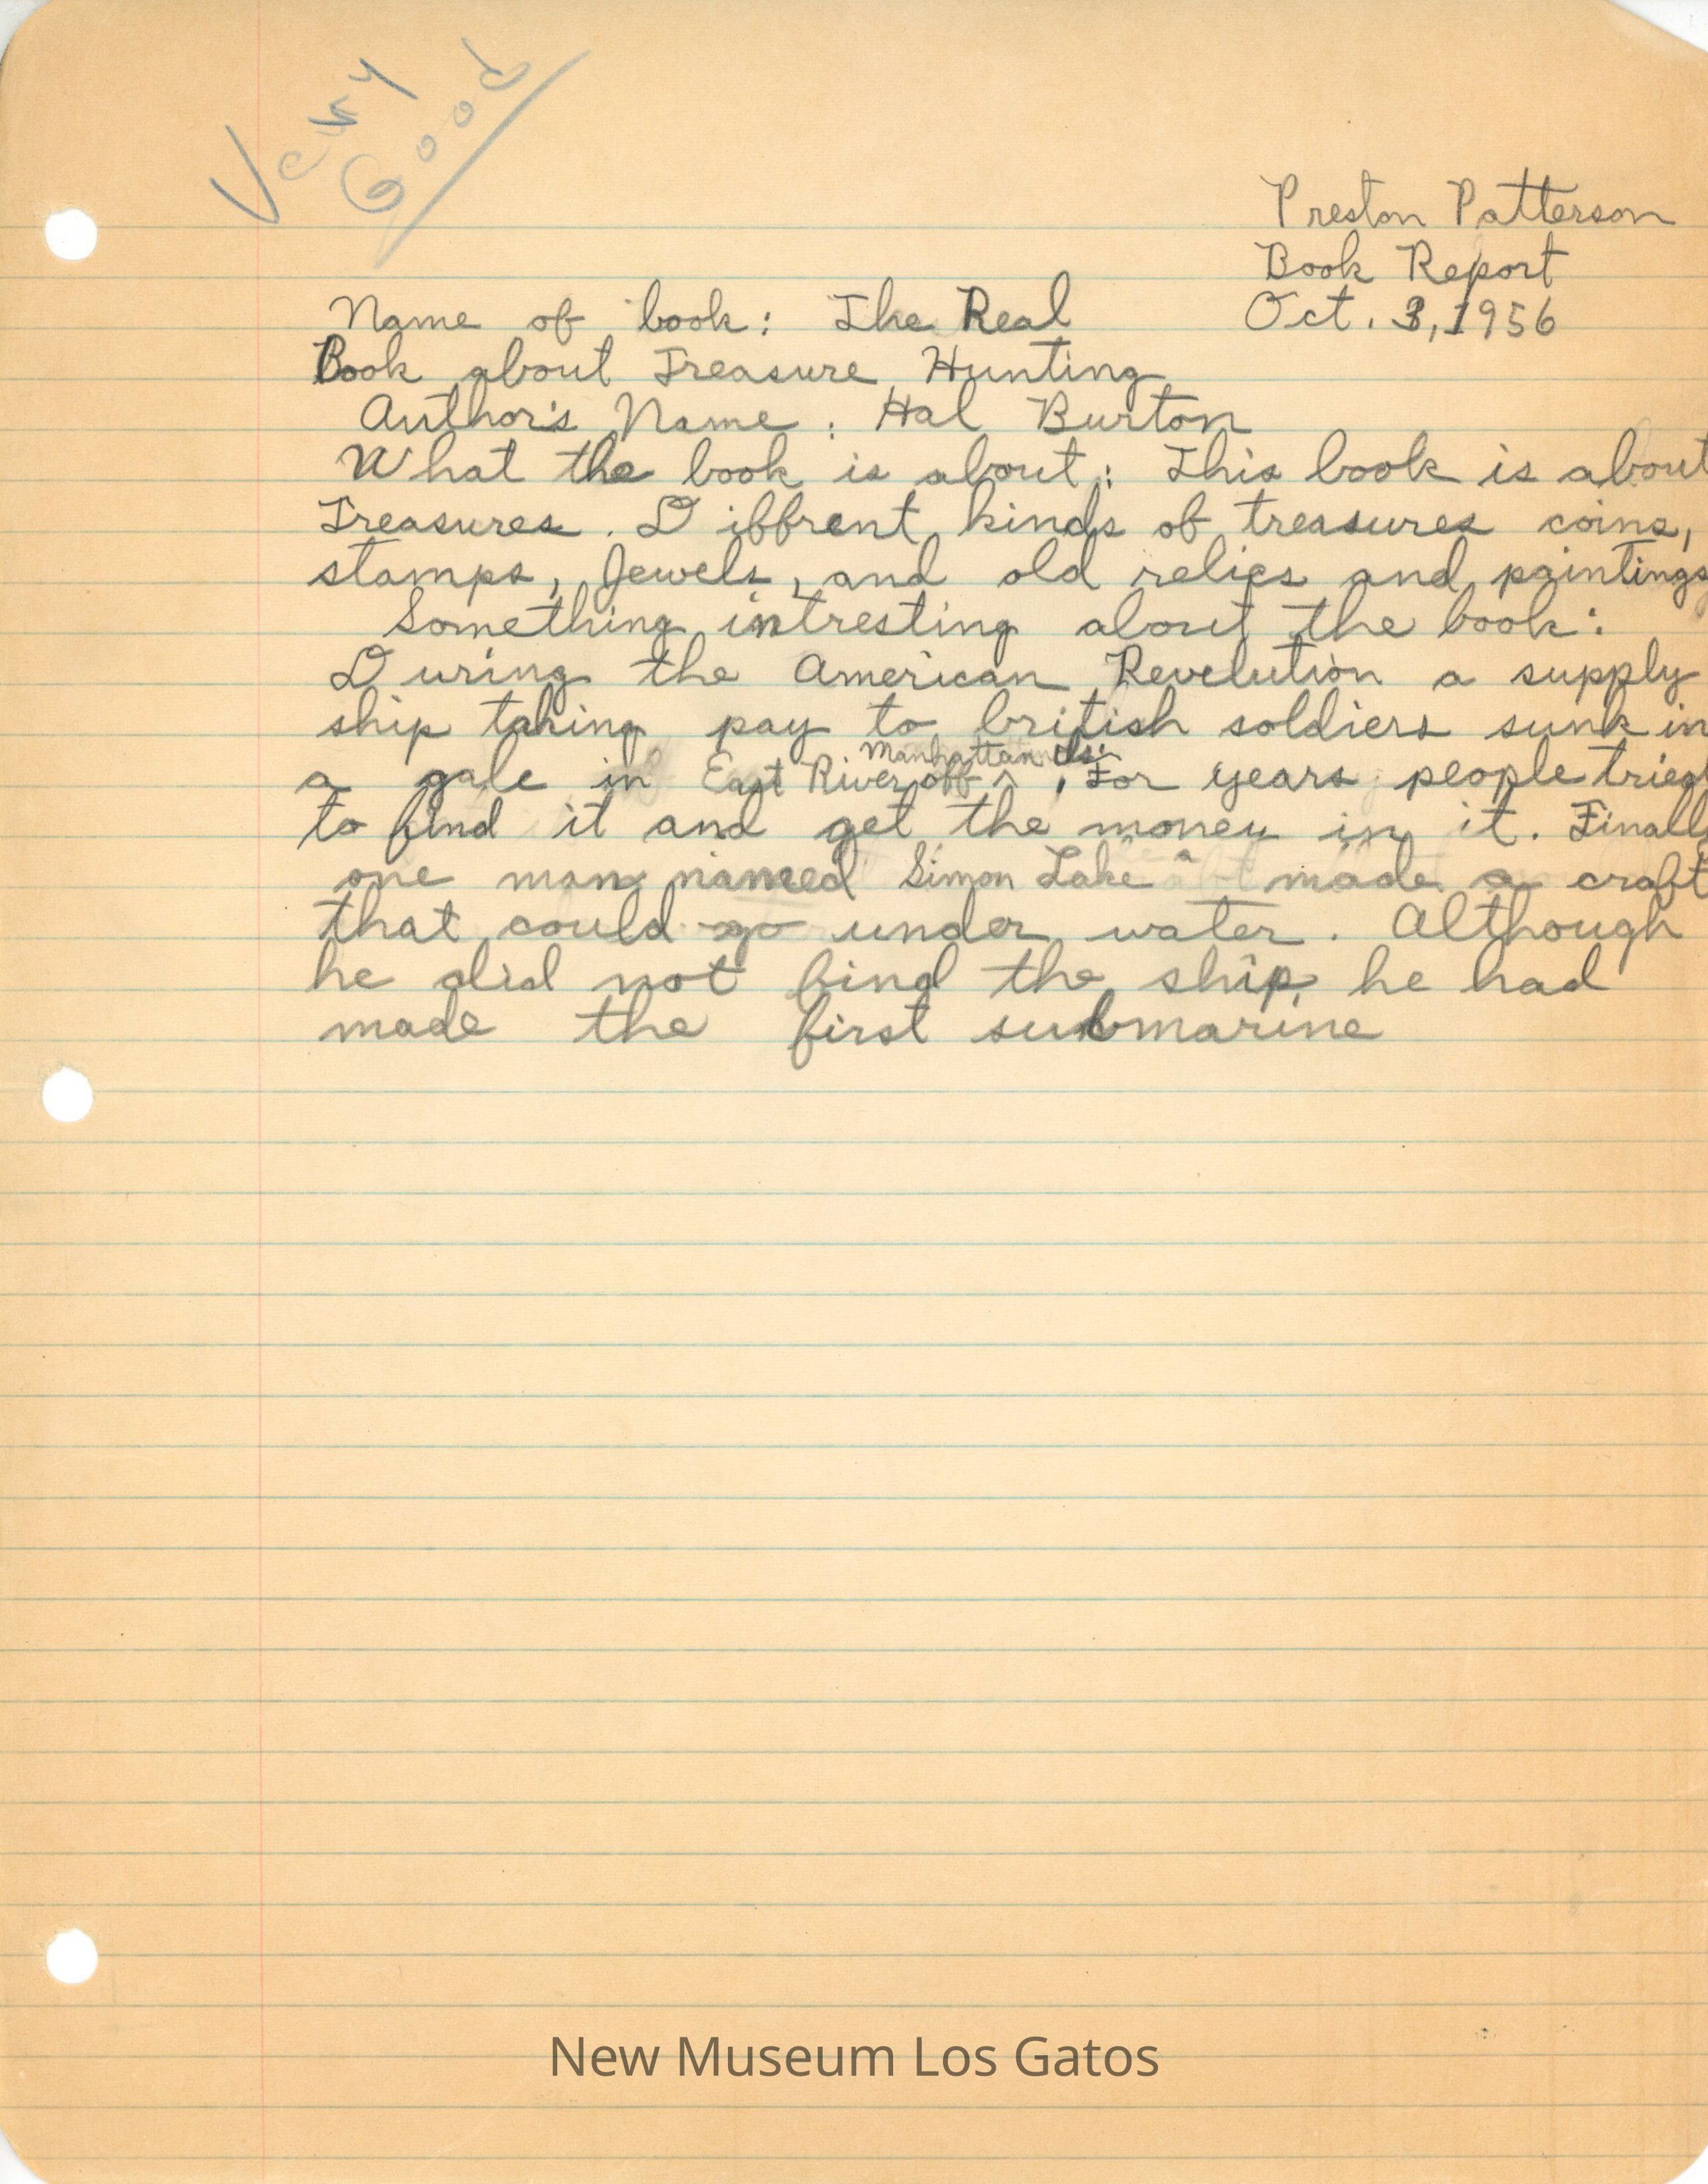 Very
Good
Preston Patterson
Book Report
Oct. 3, 1956
Name of book: The Real
Book about Treasure Hunting
Author's Name: Hal Burton
What the book is about: This book is about
Treasures. Diffrent kinds of treasures coins,
stamps, Jewels, and old relics and paintings
Something intresting about the book:
During the American Revelution a supply
ship taking pay to british soldiers sunk in
Manhattan Is.
a gale in East River off ^, For years people tried
to find it and get the money in it. Finally
one man named Simon Lake made a craft
that could go under water. Although
he did not find the ship, he had
made the first submarine
New Museum Los Gatos